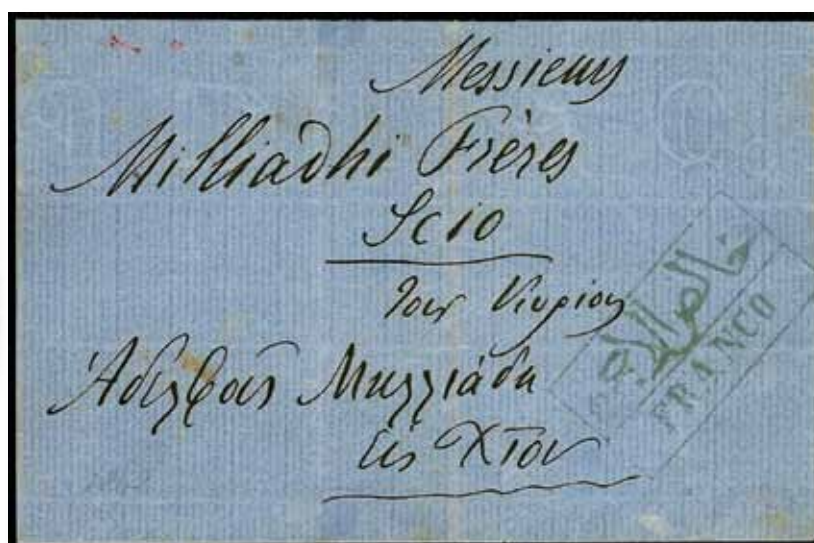 Messieurs
Milliadhi Frères
Scio
Τους Κυρίους
Ἀδελφοὺς Μιλλιάδη
Εἰς Χίον
FRANCO